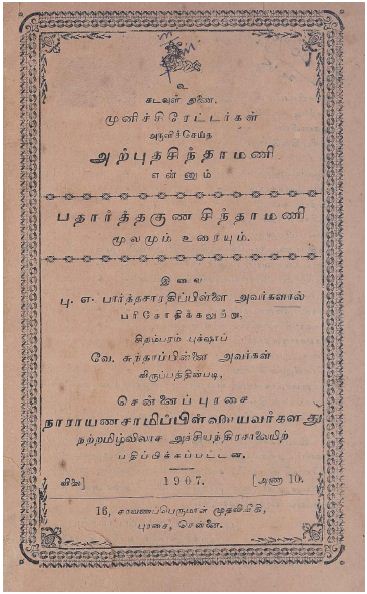 உ
கடவுள் துணை.
முனிச்சிரேட்டர்கள்
அருளிச்செய்த
அற்புதசிந்தாமணி
என்னும்
பதார்த்தகுண சிந்தாமணி
மூலமும் உரையும்.
இவை
பு. எ. பார்த்தசாரதிப்பிள்ளை அவர்களால்
பரிசோதிக்கலுற்று,
சிதம்பரம் புக்ஷாப்
வே. சுந்தரப்பிள்ளை அவர்கள்
விருப்பத்தின்படி,
சென்னைப்புரசை
நாராயணசாமிப்பிள்ளையவர்களது
நற்றமிழ்விலாச அச்சியந்திரசாலையிற்
பதிப்பிக்கப்பட்டன.
விலை] 1907. [அணா 10.
16, சரவணப்பெருமாள் முதலிவீதி,
புரசை, சென்னை.